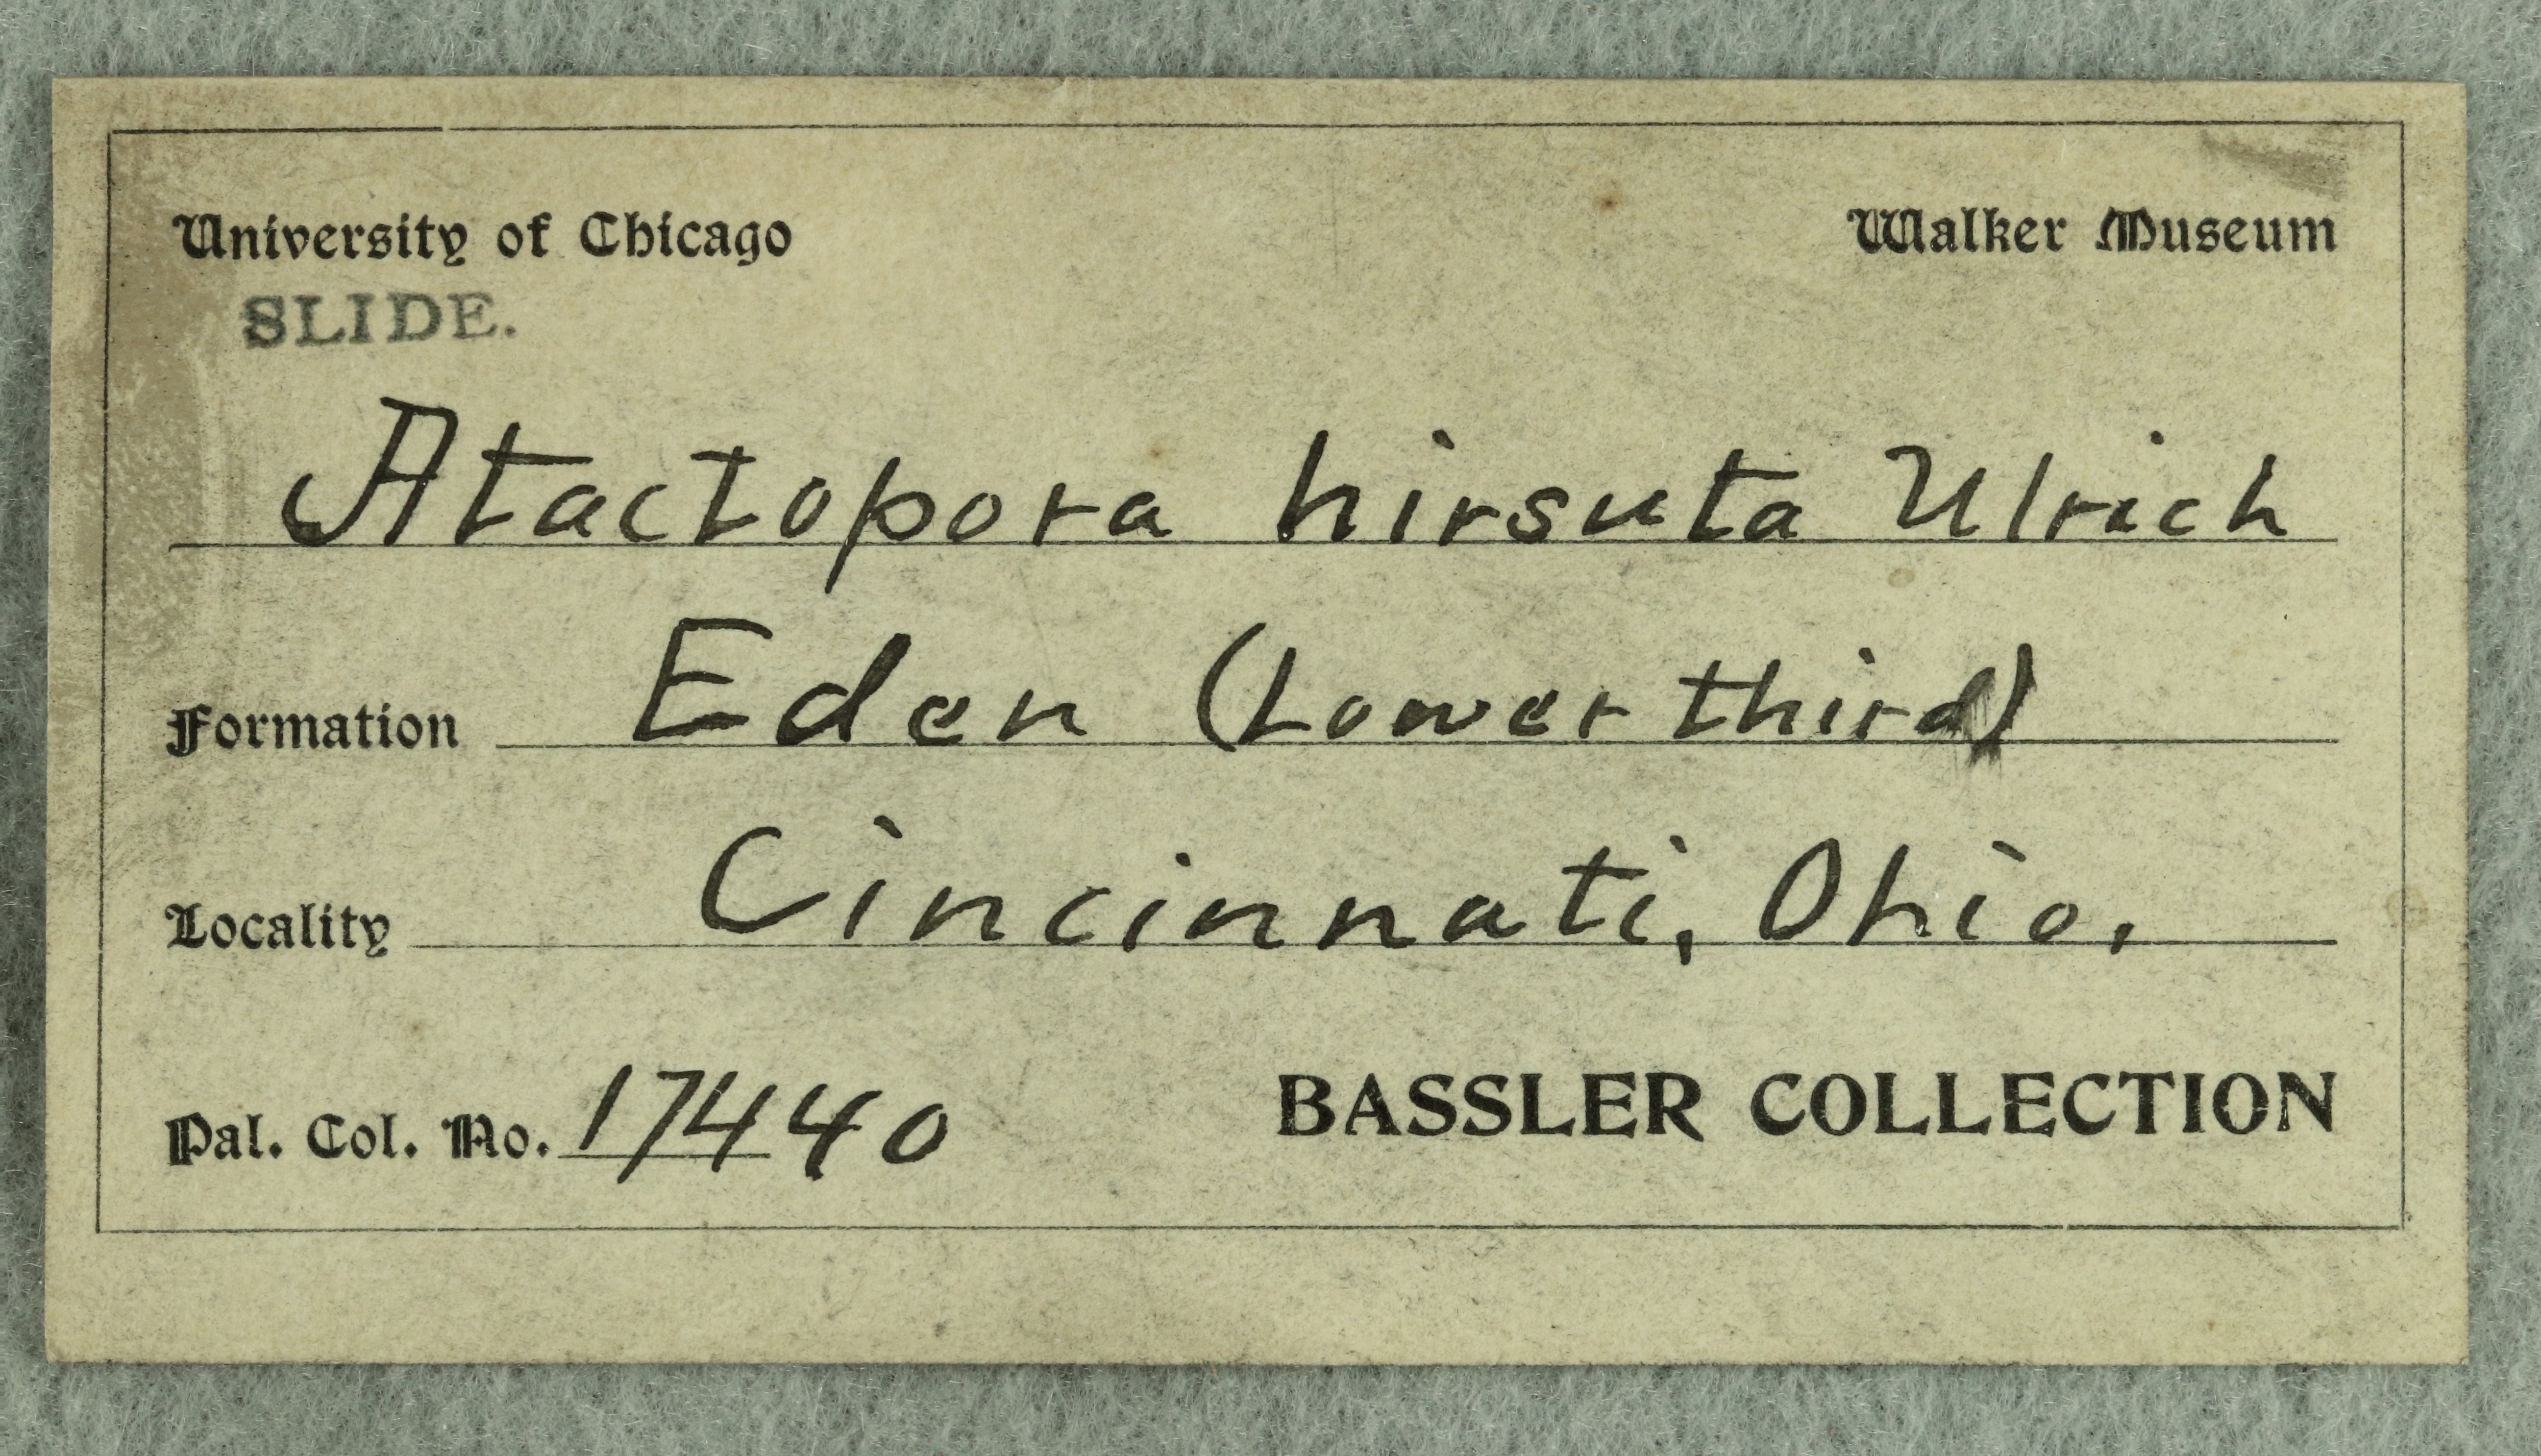 University of Chicago Walker Museum
SLIDE.
Atactopora hirsuta Ulrich
Formation Eden (Lower third)
Locality Cincinnati, Ohio.
Pal. Col. No. 17440 BASSLER COLLECTION